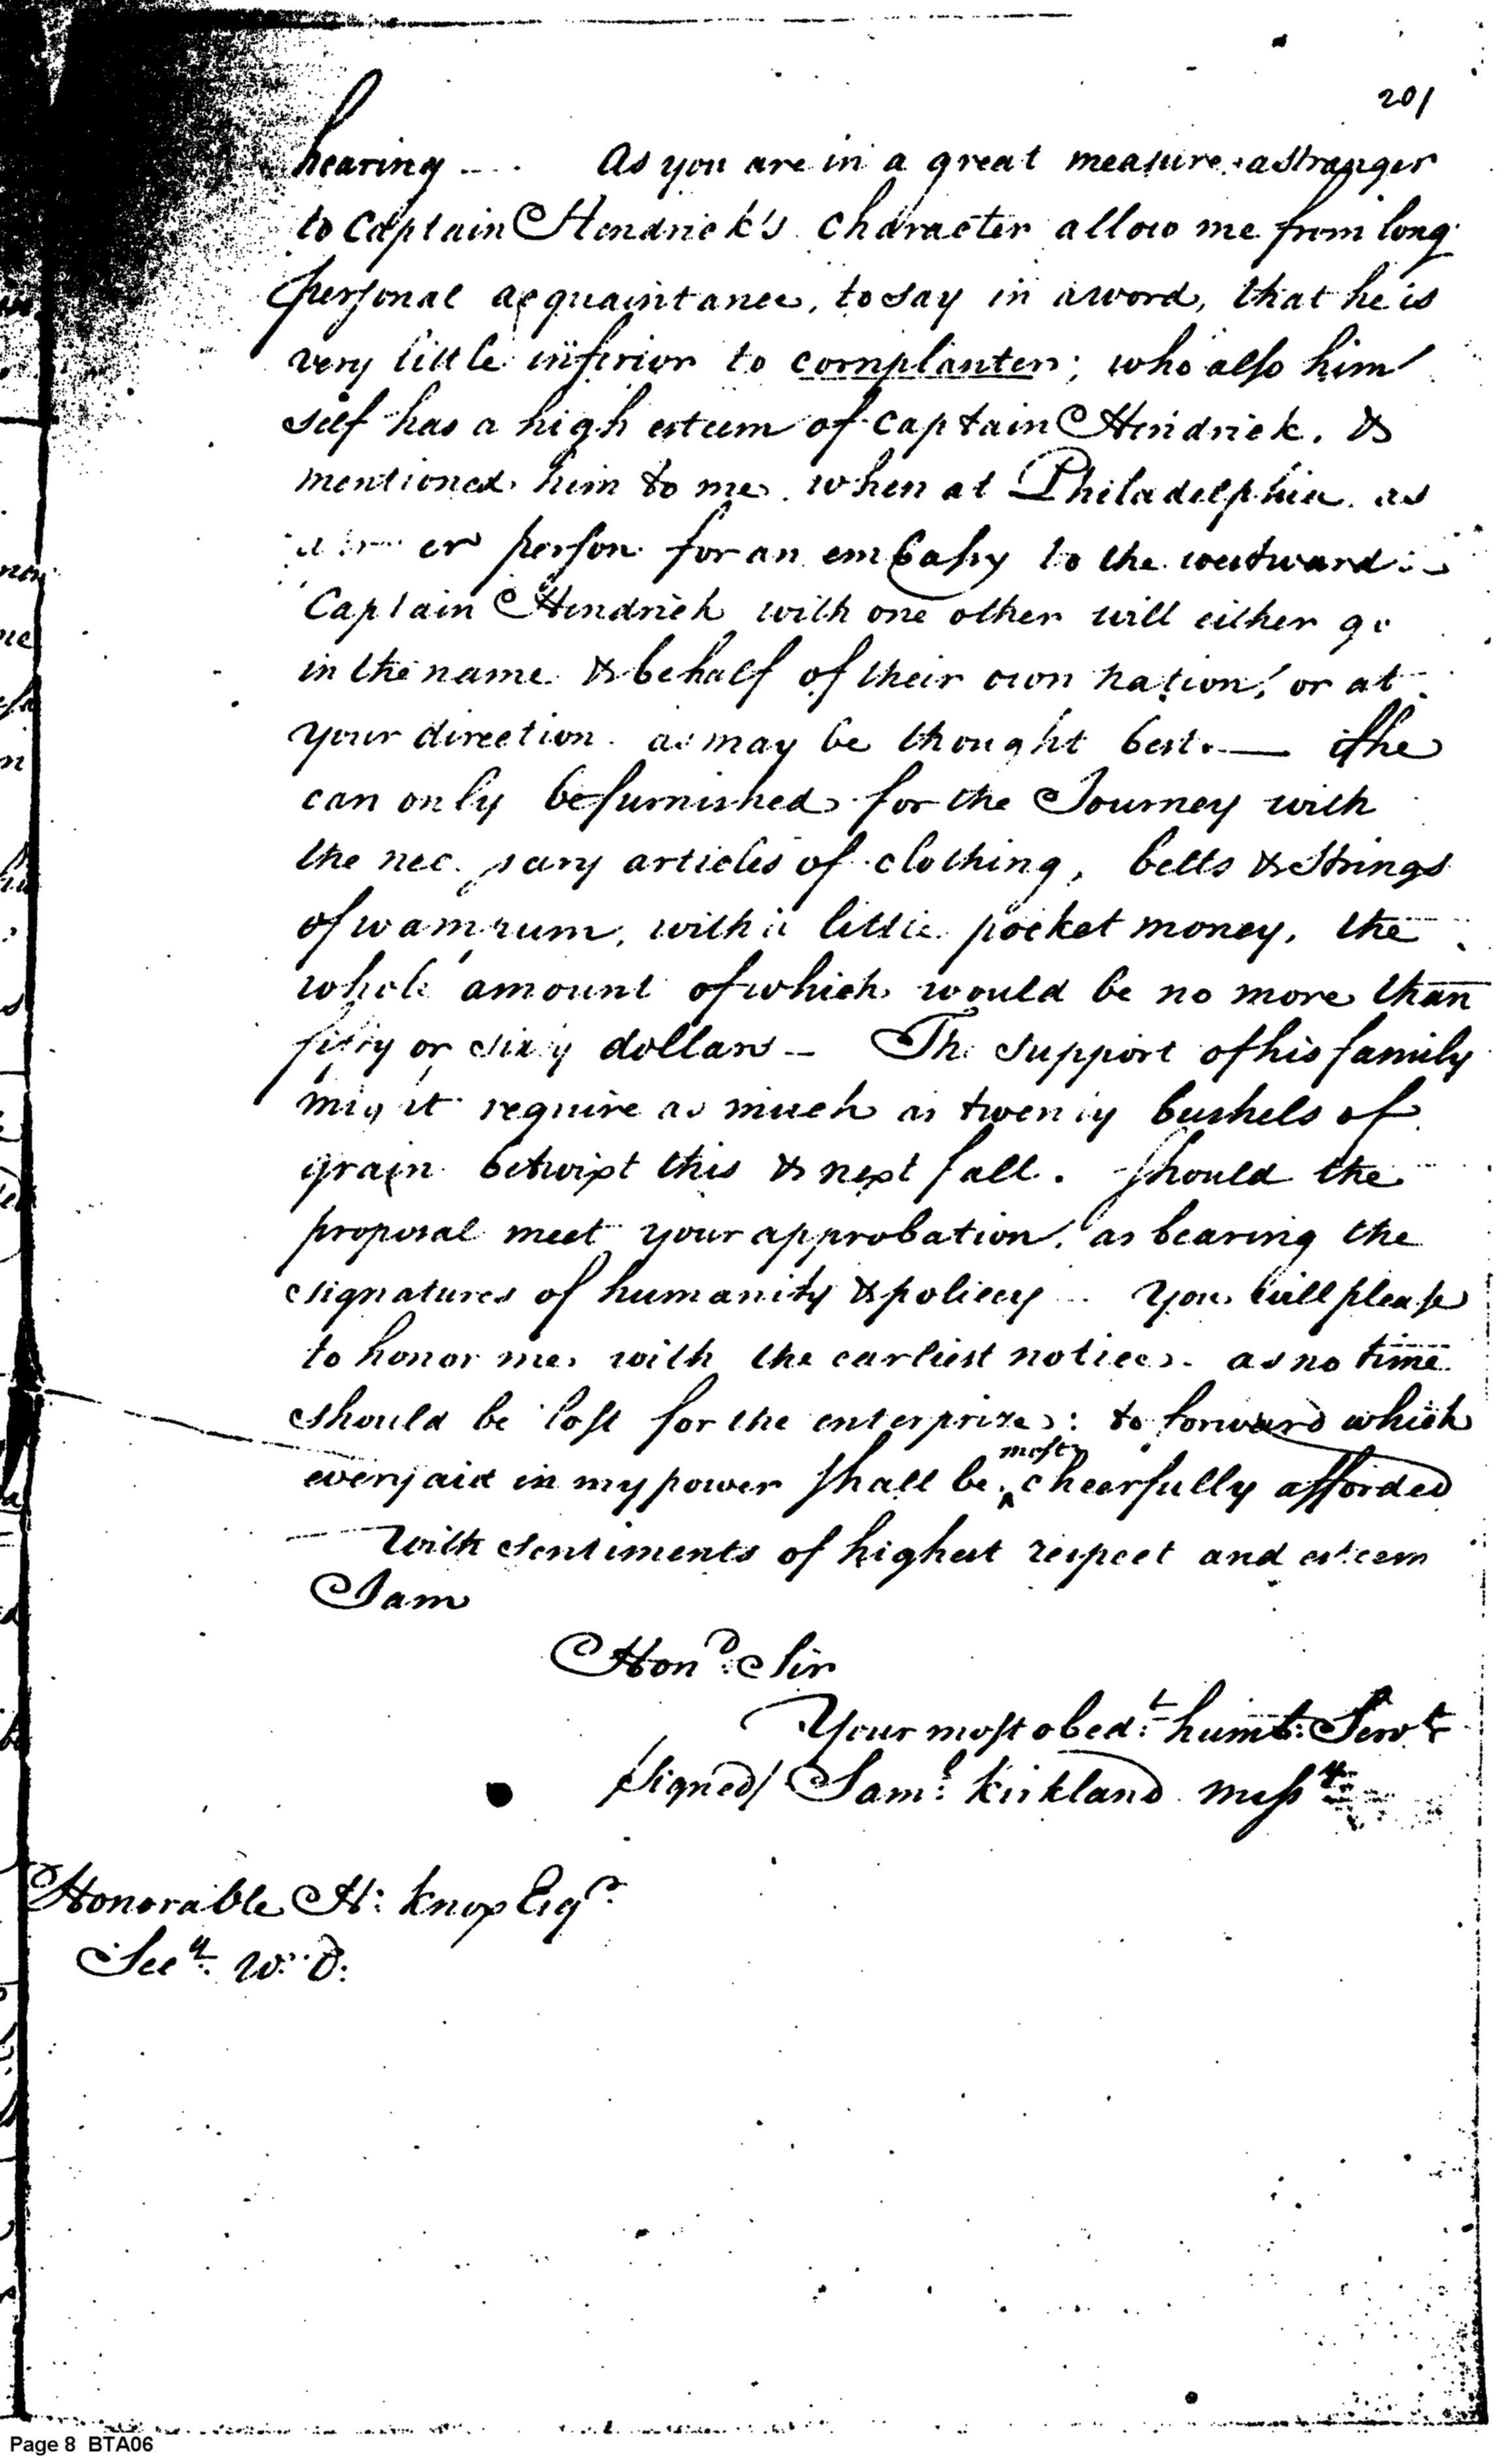 201
hearing — As you are in a great measure a stranger
to Captain Hendrick's character allow me from long
personal acquaintance, to say in a word, that he is
very little inferior to cornplanter; who also him
self has a high esteem of Captain Hendrick. &
mentioned him to me when at Philadelphia as
a person for an embassy to the westward.
Captain Hendrick with one other will either go
in the name & behalf of their own nation, or at
your direction as may be thought best. — if he
can only be furnished for the Journey with
the necessary articles of clothing, belts & strings
of wampum, with a little pocket money, the
whole amount of which would be no more than
fifty or sixty dollars — The support of his family
might require as much as twenty bushels of
grain betwixt this & next fall. should the
proposal meet your approbation, as bearing the
signatures of humanity & policey — You will please
to honor me with the earliest notice. as no time
should be lost for the enterprize: to forward which
every aid in my power shall be most cheerfully afforded
With sentiments of highest respect and esteem
I am
Hond. Sir
Your most obedt. humb: Servt
/signed/ Saml. Kirkland missy
Honorable H: Knox Esqr.
Secy. W. D:
Page 8 BTA06